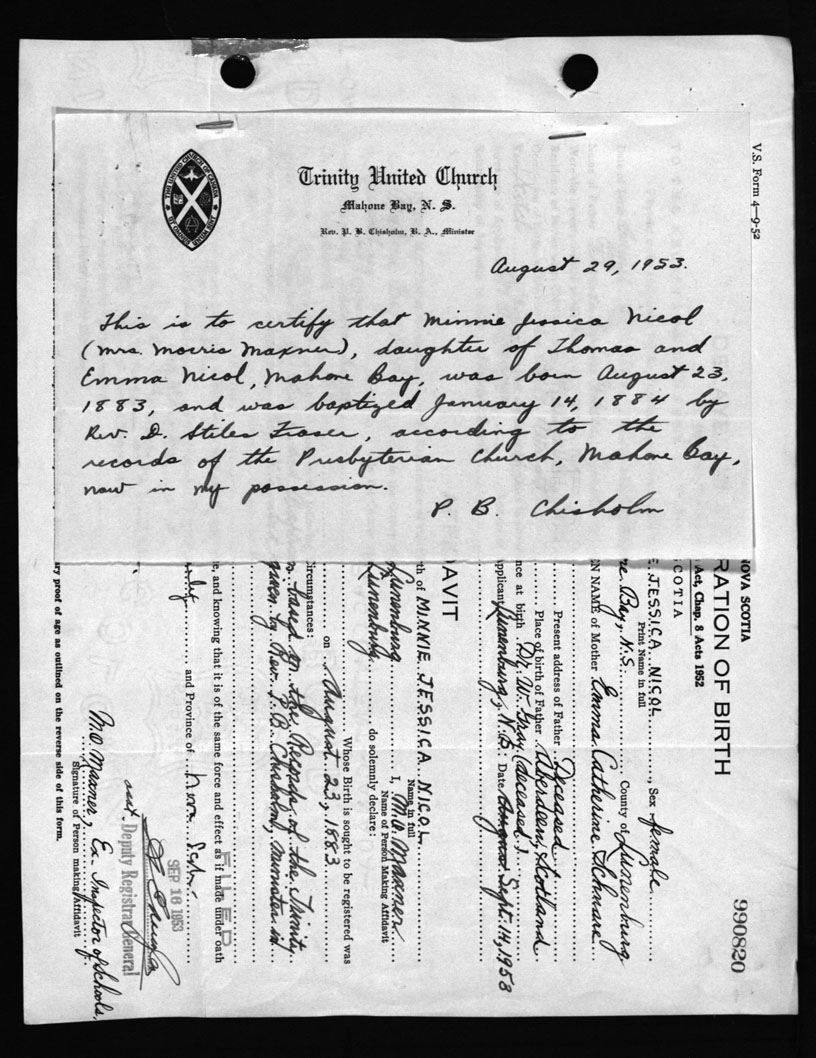 Trinity United Church
Mahone Bay, N. S.
Rev. P. B. Chisholm, B. A., Minister
THE UNITED CHURCH OF CANADA
August 29, 1953.
This is to certify that Minnie Jessica Nicol
(Mrs. Morris Maxner), daughter of Thomas and
Emma Nicol, Mahone Bay, was born August 23,
1883, and was baptized January 14, 1884 by
Rev. D. Stiles Fraser, according to the
records of the Presbyterian Church, Mahone Bay,
now in my possession.
P. B. Chisholm
V.S. Form 4—9-52
990820
NOVA SCOTIA
RATION OF BIRTH
Act, Chap. 8 Acts 1952
SCOTIA
JESSICA NICOL, Sex female
Print Name in full
re Bay, N.S. County of Lunenburg
EN NAME of Mother Emma Catherine Schnare
Present address of Father Deceased
Place of birth of Father Aberdeen, Scotland
nce at birth Dr. W. Gray (deceased)
applicant Lunenburg, N.S. Date Sept. 14, 1953
DAVIT
th of MINNIE JESSICA NICOL
Name in full
Lunenburg I, M.O. Maxner
Name of Person Making Affidavit
Lunenburg do solemnly declare:
Whose Birth is sought to be registered was
on August 23, 1883
circumstances:
based on the Records of the Trinity
given by Rev. P. B. Chisholm, minister in
e, and knowing that it is of the same force and effect as if made under oath
FILED
and Province of Nova Scotia
SEP 16 1953
asst. Deputy Registrar General
M.O. Maxner, Ex. Inspector of Schools,
Signature of Person making Affidavit
ry proof of age as outlined on the reverse side of this form.